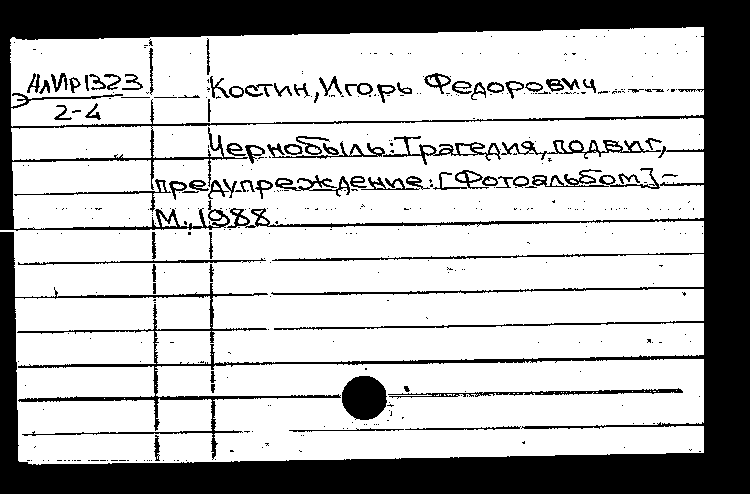 АлИр1323 Костин, Игорь Федорович
2-4
Чернобыль: Трагедия, подвиг,
предупреждение: [Фотоальбом] -
М., 1988.